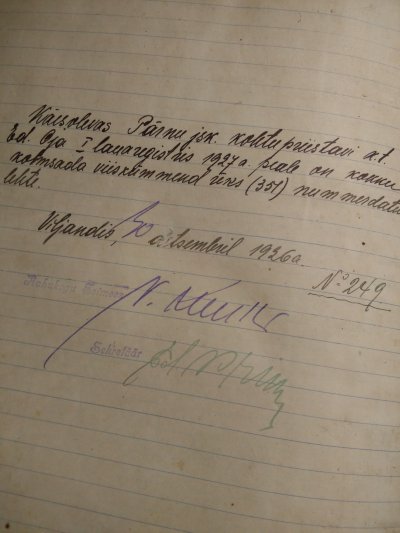 Käesolevas Pärnu jsk. kohtupriistavi k.t.
Ed. Oja I lauaregistris 1927 a. peale on kokku
kolmsada viiskümmend üks (351) nummerdatud
lehte.
Viljandis, 30 detsembril 1926 a.
№ 249
Rahukogu Esimees
Sekretäär